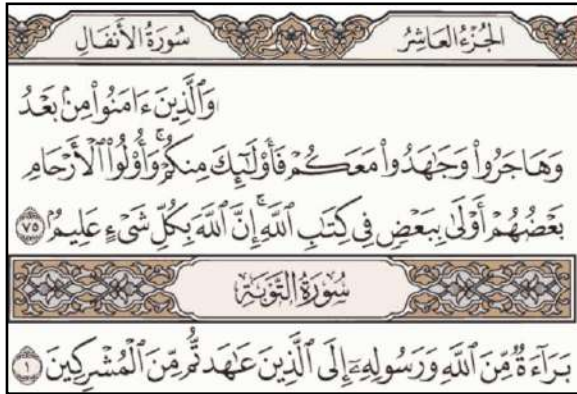 الجُزْءُ العَاشِرُ سُورَةُ الأَنفَالِ
وَٱلَّذِينَ ءَامَنُواْ مِنۢ بَعْدُ
وَهَاجَرُواْ وَجَٰهَدُواْ مَعَكُمْ فَأُوْلَٰٓئِكَ مِنكُمْۚ وَأُوْلُواْ ٱلْأَرْحَامِ
بَعْضُهُمْ أَوْلَىٰ بِبَعْضٍ فِى كِتَٰبِ ٱللَّهِۚ إِنَّ ٱللَّهَ بِكُلِّ شَىْءٍ عَلِيمٌۢ ٧٥
سُورَةُ التَّوْبَةِ
بَرَآءَةٌ مِّنَ ٱللَّهِ وَرَسُولِهِۦٓ إِلَى ٱلَّذِينَ عَٰهَدتُّم مِّنَ ٱلْمُشْرِكِينَ ١